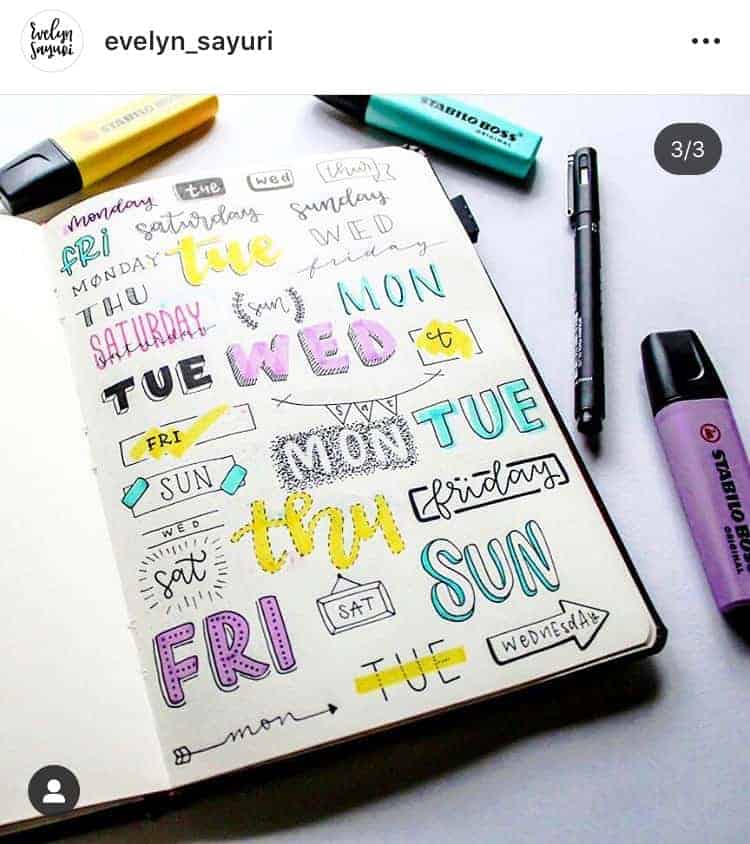 Evelyn
Sayuri
evelyn_sayuri
3/3
STABILO BOSS
STABILO BOSS
ORIGINAL
monday tue wed thur
saturday sunday
FRI tue WED
MONDAY friday
THU (sun) MON
SATURDAY
saturday
TUE WED t
FRI MON TUE
SUN friday
WED thu
sat SAT SUN
FRI TUE WEDNESDAY
mon
STABILO BOSS
ORIGINAL